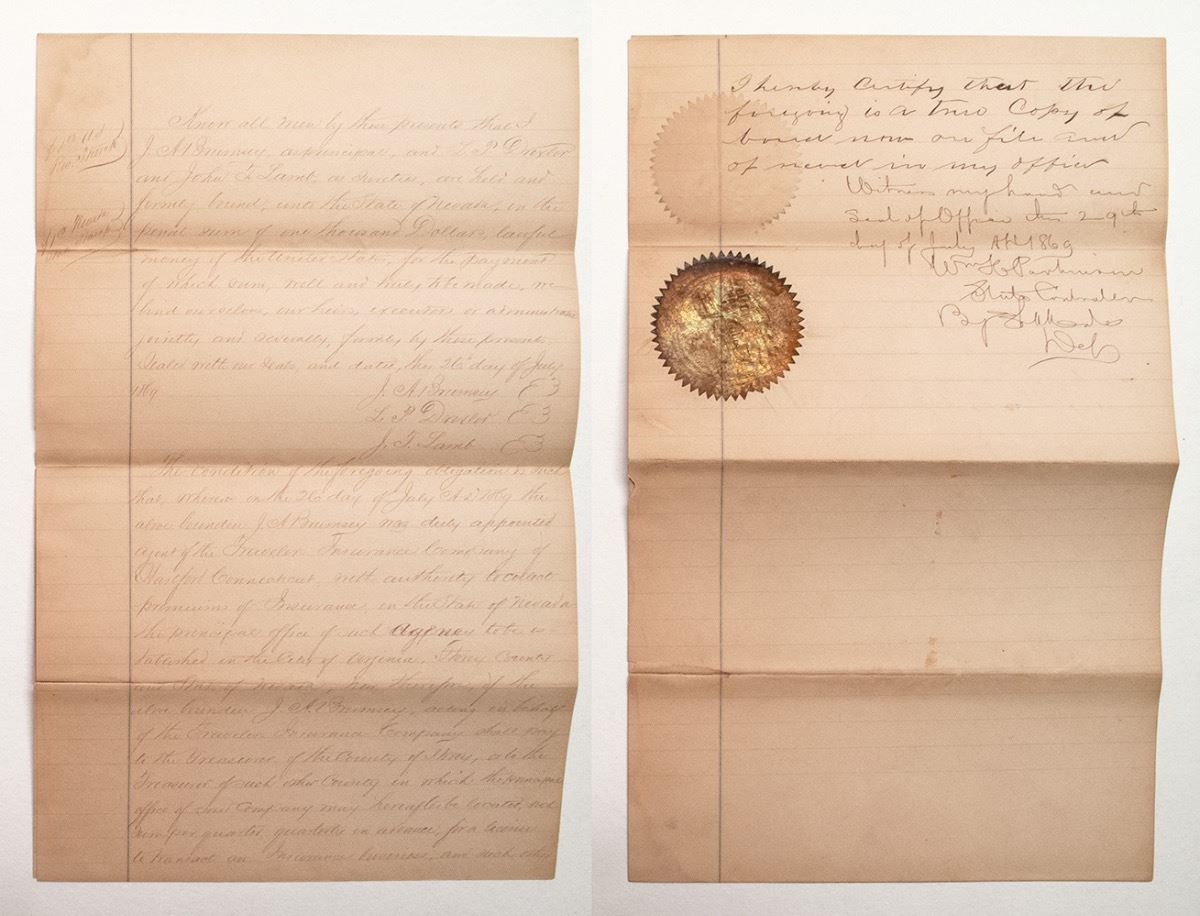 Know all men by these presents that I
J. A. Brumsey, as principal, and L. P. Drexler
and John T. Lamb, as sureties, are held and
firmly bound, unto the State of Nevada, in the
penal sum of one thousand Dollars, lawful
money of the United States, for the payment
of which sum, well and truly to be made, we
bind ourselves, our heirs, executors or administrators
jointly and severally, firmly by these presents.
Sealed with our seals, and dated, this 26th day of July
1869
J. A. Brumsey
L. P. Drexler
J. T. Lamb
The condition of the foregoing obligation is such
that, whereas on the 26th day of July A.D. 1869 the
above bounden J. A. Brumsey was duly appointed
agent of the Travelers Insurance Company of
Hartford Connecticut, with authority to collect
premiums of Insurance, in the State of Nevada
the principal office of such Agency to be es-
tablished in the City of Virginia, Storey County
and State of Nevada, now therefore, if the
above bounden J. A. Brumsey, acting in behalf
of the Travelers Insurance Company shall pay
to the Treasurer of the County of Storey, or to the
Treasurer of such other County in which the principal
office of said Company may hereafter be located, such
sum per quarter, quarterly in advance, for a license
to transact an Insurance business, and such other
I hereby Certify that the
foregoing is a true Copy of
bond now on file and
of record in my office
Witness my hand and
Seal of Office this 29th
day of July AD 1869
Wm K Parkinson
State Controller
By
Dep